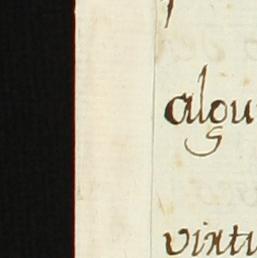 algu
virtu